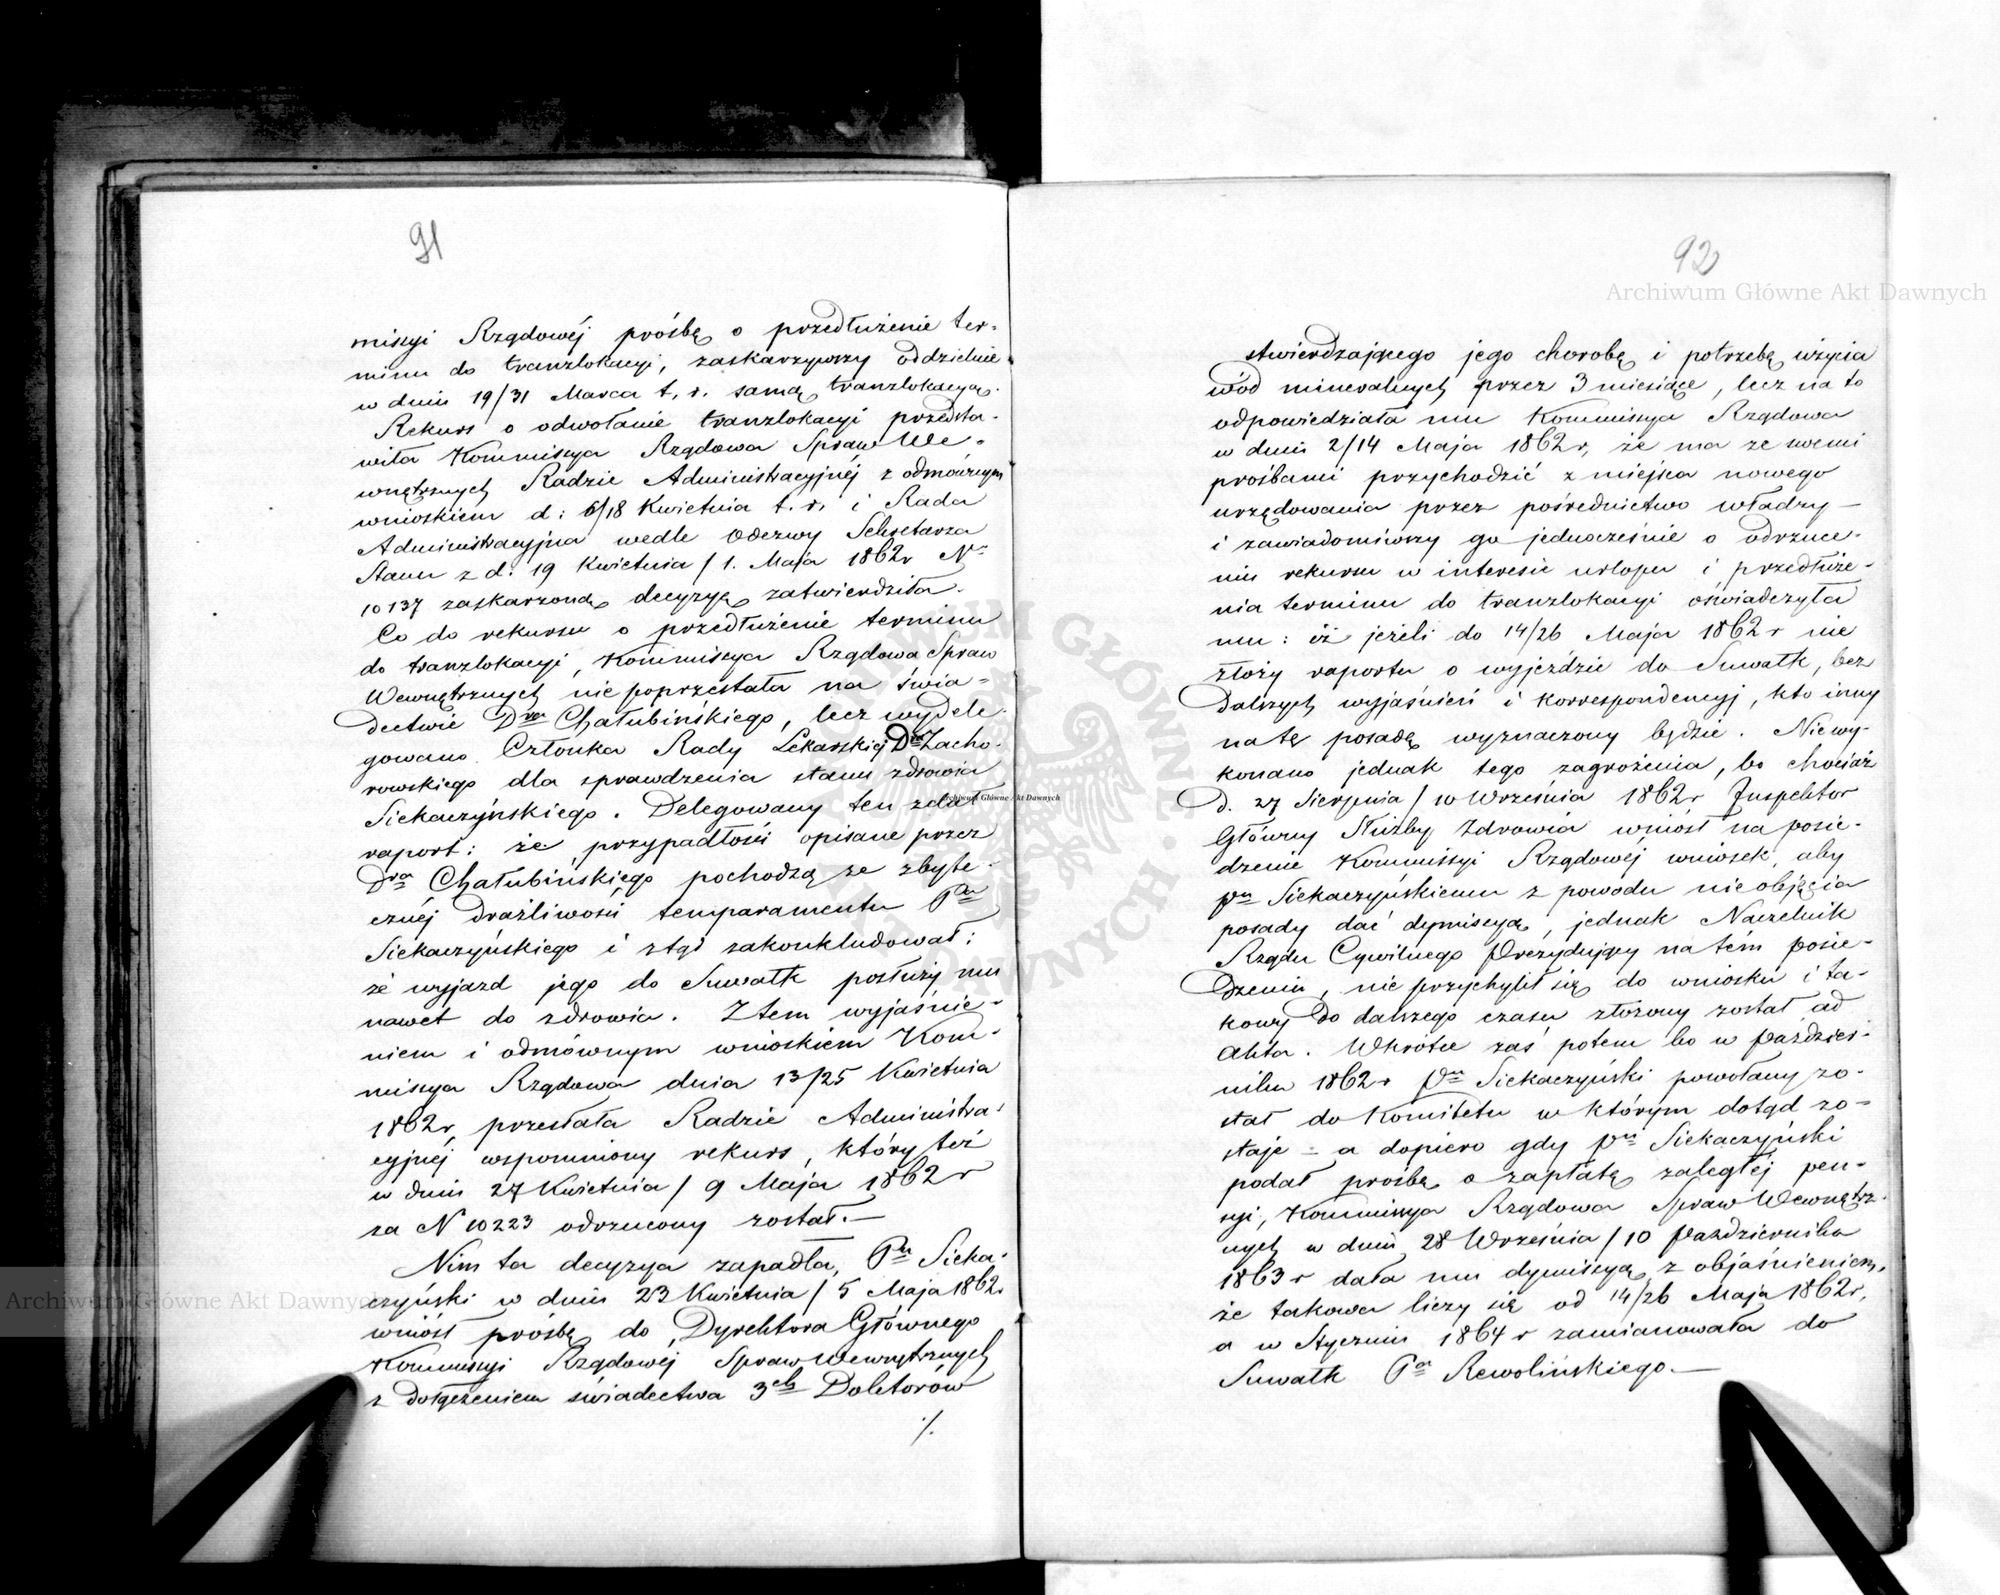 91
missyi Rządowéj prośbę o przedłużenie ter-
minu do tranzlokacyi, zaskarzywszy oddzielnie
w dniu 19/31 Marca t. r. samą tranzlokacyą.
Rekurs o odwołanie tranzlokacyi przedsta-
wiła Kommissya Rządowa Spraw We-
wnętrznych Radzie Administracyjnéj z odmównym
wnioskiem d: 6/18 Kwietnia t. r. i Rada
Administracyjna wedle Odezwy Sekretarza
Stanu z d: 19 Kwietnia / 1. Maja 1862 r Nr
10137 zaskarzoną decyzyą zatwierdziła.
Co do rekursu o przedłużenie terminu
do tranzlokacyi, Kommissya Rządowa Spraw
Wewnętrznych nie poprzestała na świa-
dectwie Dra Chałubińskiego, lecz wydele-
gowano Członka Rady Lekarskiej Dra Zacho-
rowskiego dla sprawdzenia stanu zdrowia
Siekaczyńskiego. Delegowany ten zdał
raport: że przypadłości opisane przez
Dra Chałubińskiego pochodzą ze zbyte-
cznéj drażliwości temparamentu Pa
Siekaczyńskiego i ztąd zakonkludował:
że wyjazd jego do Suwałk posłuży mu
nawet do zdrowia. Z tem wyjaśnie-
niem i odmównym wnioskiem Kom-
missya Rządowa dnia 13/25 Kwietnia
1862 r, przesłała Radzie Administra-
cyjnéj wspomniony rekurs, który też
w dniu 27 Kwietnia / 9 Maja 1862 r
za N 10223 odrzucony został.—
Nim ta decyzya zapadła, Pan Sieka-
czyński w dniu 23 Kwietnia / 5 Maja 1862 r
wniósł prośbę do Dyrektora Głównego
Kommissyi Rządowéj Spraw Wewnętrznych
z dołączeniem świadectwa 3ch Doktorów
./.
92
stwierdzającego jego chorobę i potrzebę użycia
wód mineralnych przez 3 miesiące, lecz na to
odpowiedziała mu Kommissya Rządowa
w dniu 2/14 Maja 1862 r, że ma ze swemi
prośbami przychodzić z miejsca nowego
urzędowania przez pośrednictwo władzy—
i zawiadomiwszy go jednocześnie o odrzuce-
niu rekursu w interesie urlopu i przedłuże-
nia terminu do tranzlokacyi oświadczyła
mu: iż jeżeli do 14/26 Maja 1862 r nie
złoży raportu o wyjeździe do Suwałk, bez
dalszych wyjaśnień i korrespondencyj, kto inny
na tę posadę wyznaczony będzie. Niewy-
konano jednak tego zagrożenia, bo chociaż
d. 27 Sierpnia / 10 Września 1862 r Inspektor
Główny Służby Zdrowia wniósł na posie-
dzenie Kommissyi Rządowéj wniosek, aby
Pu Siekaczyńskiemu z powodu nieobjęcia
posady dać dymissyą, jednak Naczelnik
Rządu Cywilnego Prezydujący na tém posie-
dzeniu, nie przychylił się do wniosku i ta-
kowy do dalszego czasu złożony został ad
Akta. Wkrótce zaś potem bo w Paździer-
niku 1862 r Pan Siekaczyński powołany zo-
stał do Komitetu w którym dotąd zo-
staje – a dopiero gdy Pan Siekaczyński
podał prośbę o zapłatę zaległej pen-
syi, Kommissya Rządowa Spraw Wewnętrz-
nych w dniu 28 Września / 10 Października
1863 r dała mu dymissyą, z objaśnieniem,
że takowa liczy się od 14/26 Maja 1862 r,
a w Styczniu 1864 r zamianowała do
Suwałk Pa Rewolińskiego.—
Archiwum Główne Akt Dawnych
Archiwum Główne Akt Dawnych
Archiwum Główne Akt Dawnych
ARCHIWUM GŁÓWNE AKT DAWNYCH